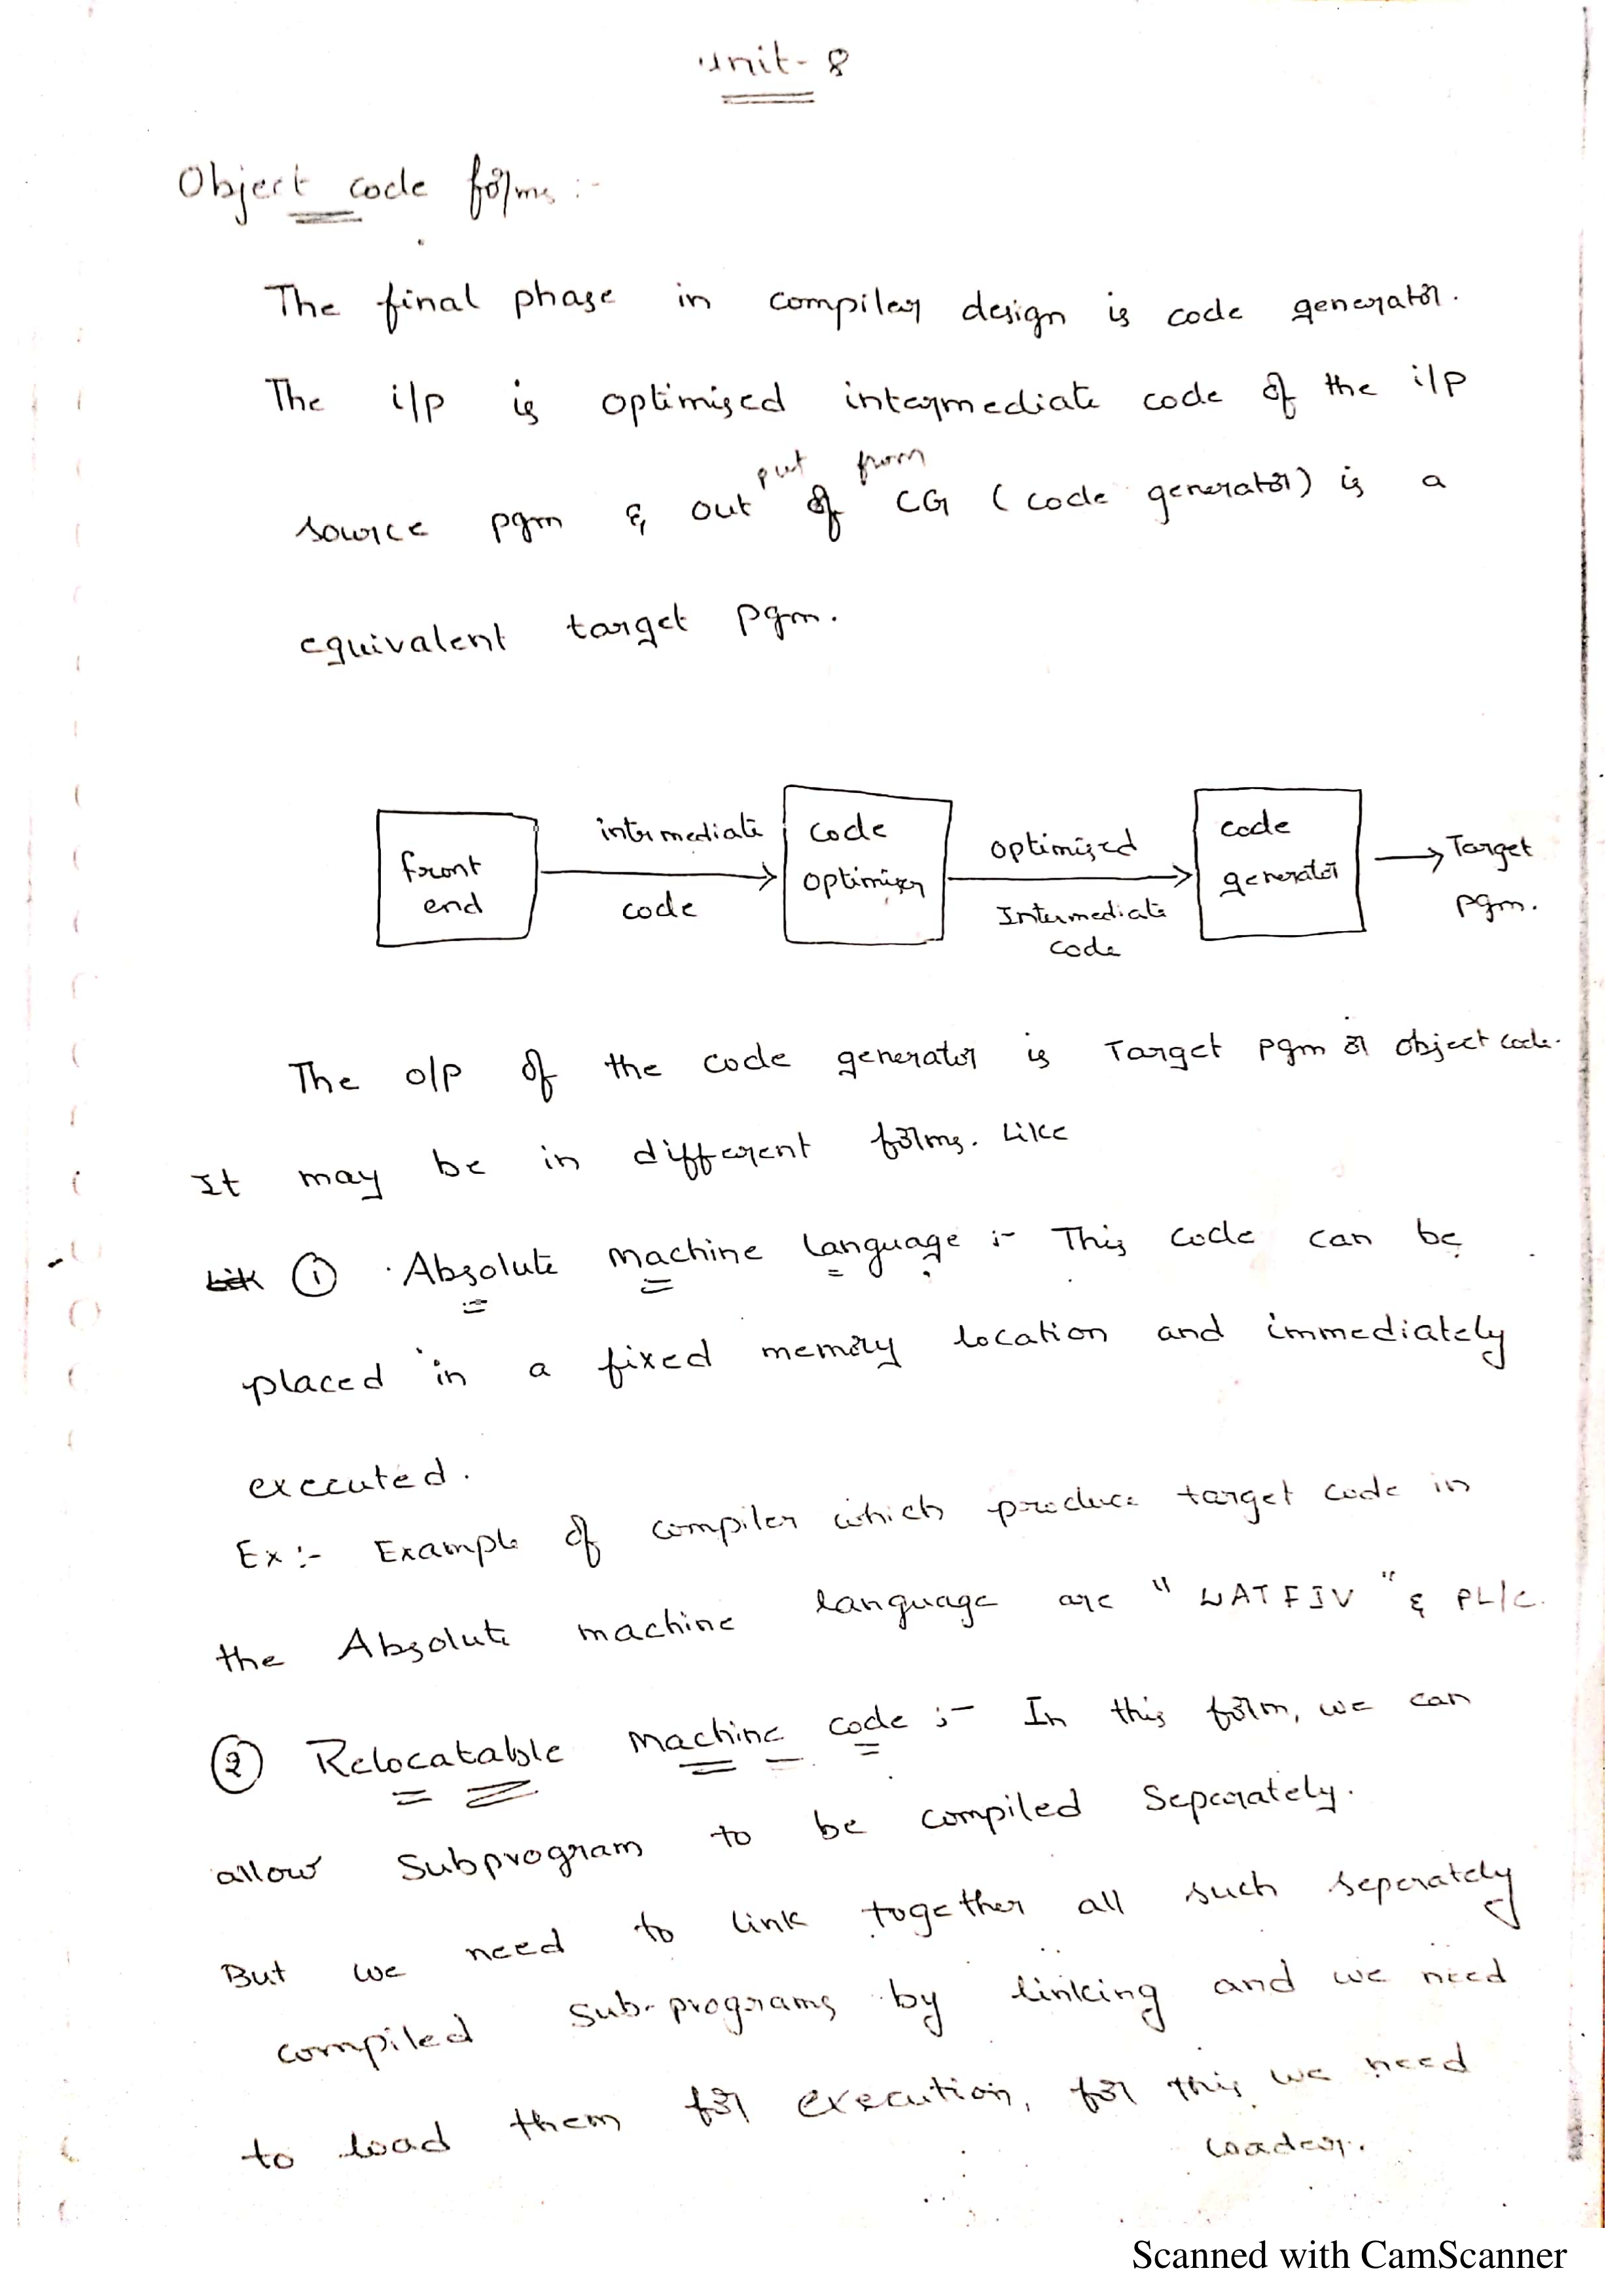 unit- 8
Object code forms :-
The final phase in compiler design is code generator.
The i/p is optimised intermediate code of the i/p
put from
source pgm & out of CG (code generator) is a
equivalent target pgm.
front
end
intermediate
code
code
optimiser
optimised
Intermediate
code
code
generator
Target
pgm.
The o/p of the code generator is Target pgm or object code.
It may be in different forms. Like
① Absolute machine language :- This code can be
placed in a fixed memory location and immediately
executed.
Ex :- Example of compiler which produce target code in
the Absolute machine language are "WATFIV" & PL/C.
② Relocatable machine code :- In this form, we can
allow subprogram to be compiled Seperately.
But we need to link together all such seperately
compiled sub-programs by linking and we need
to load them for execution, for this we need
loader.
Scanned with CamScanner